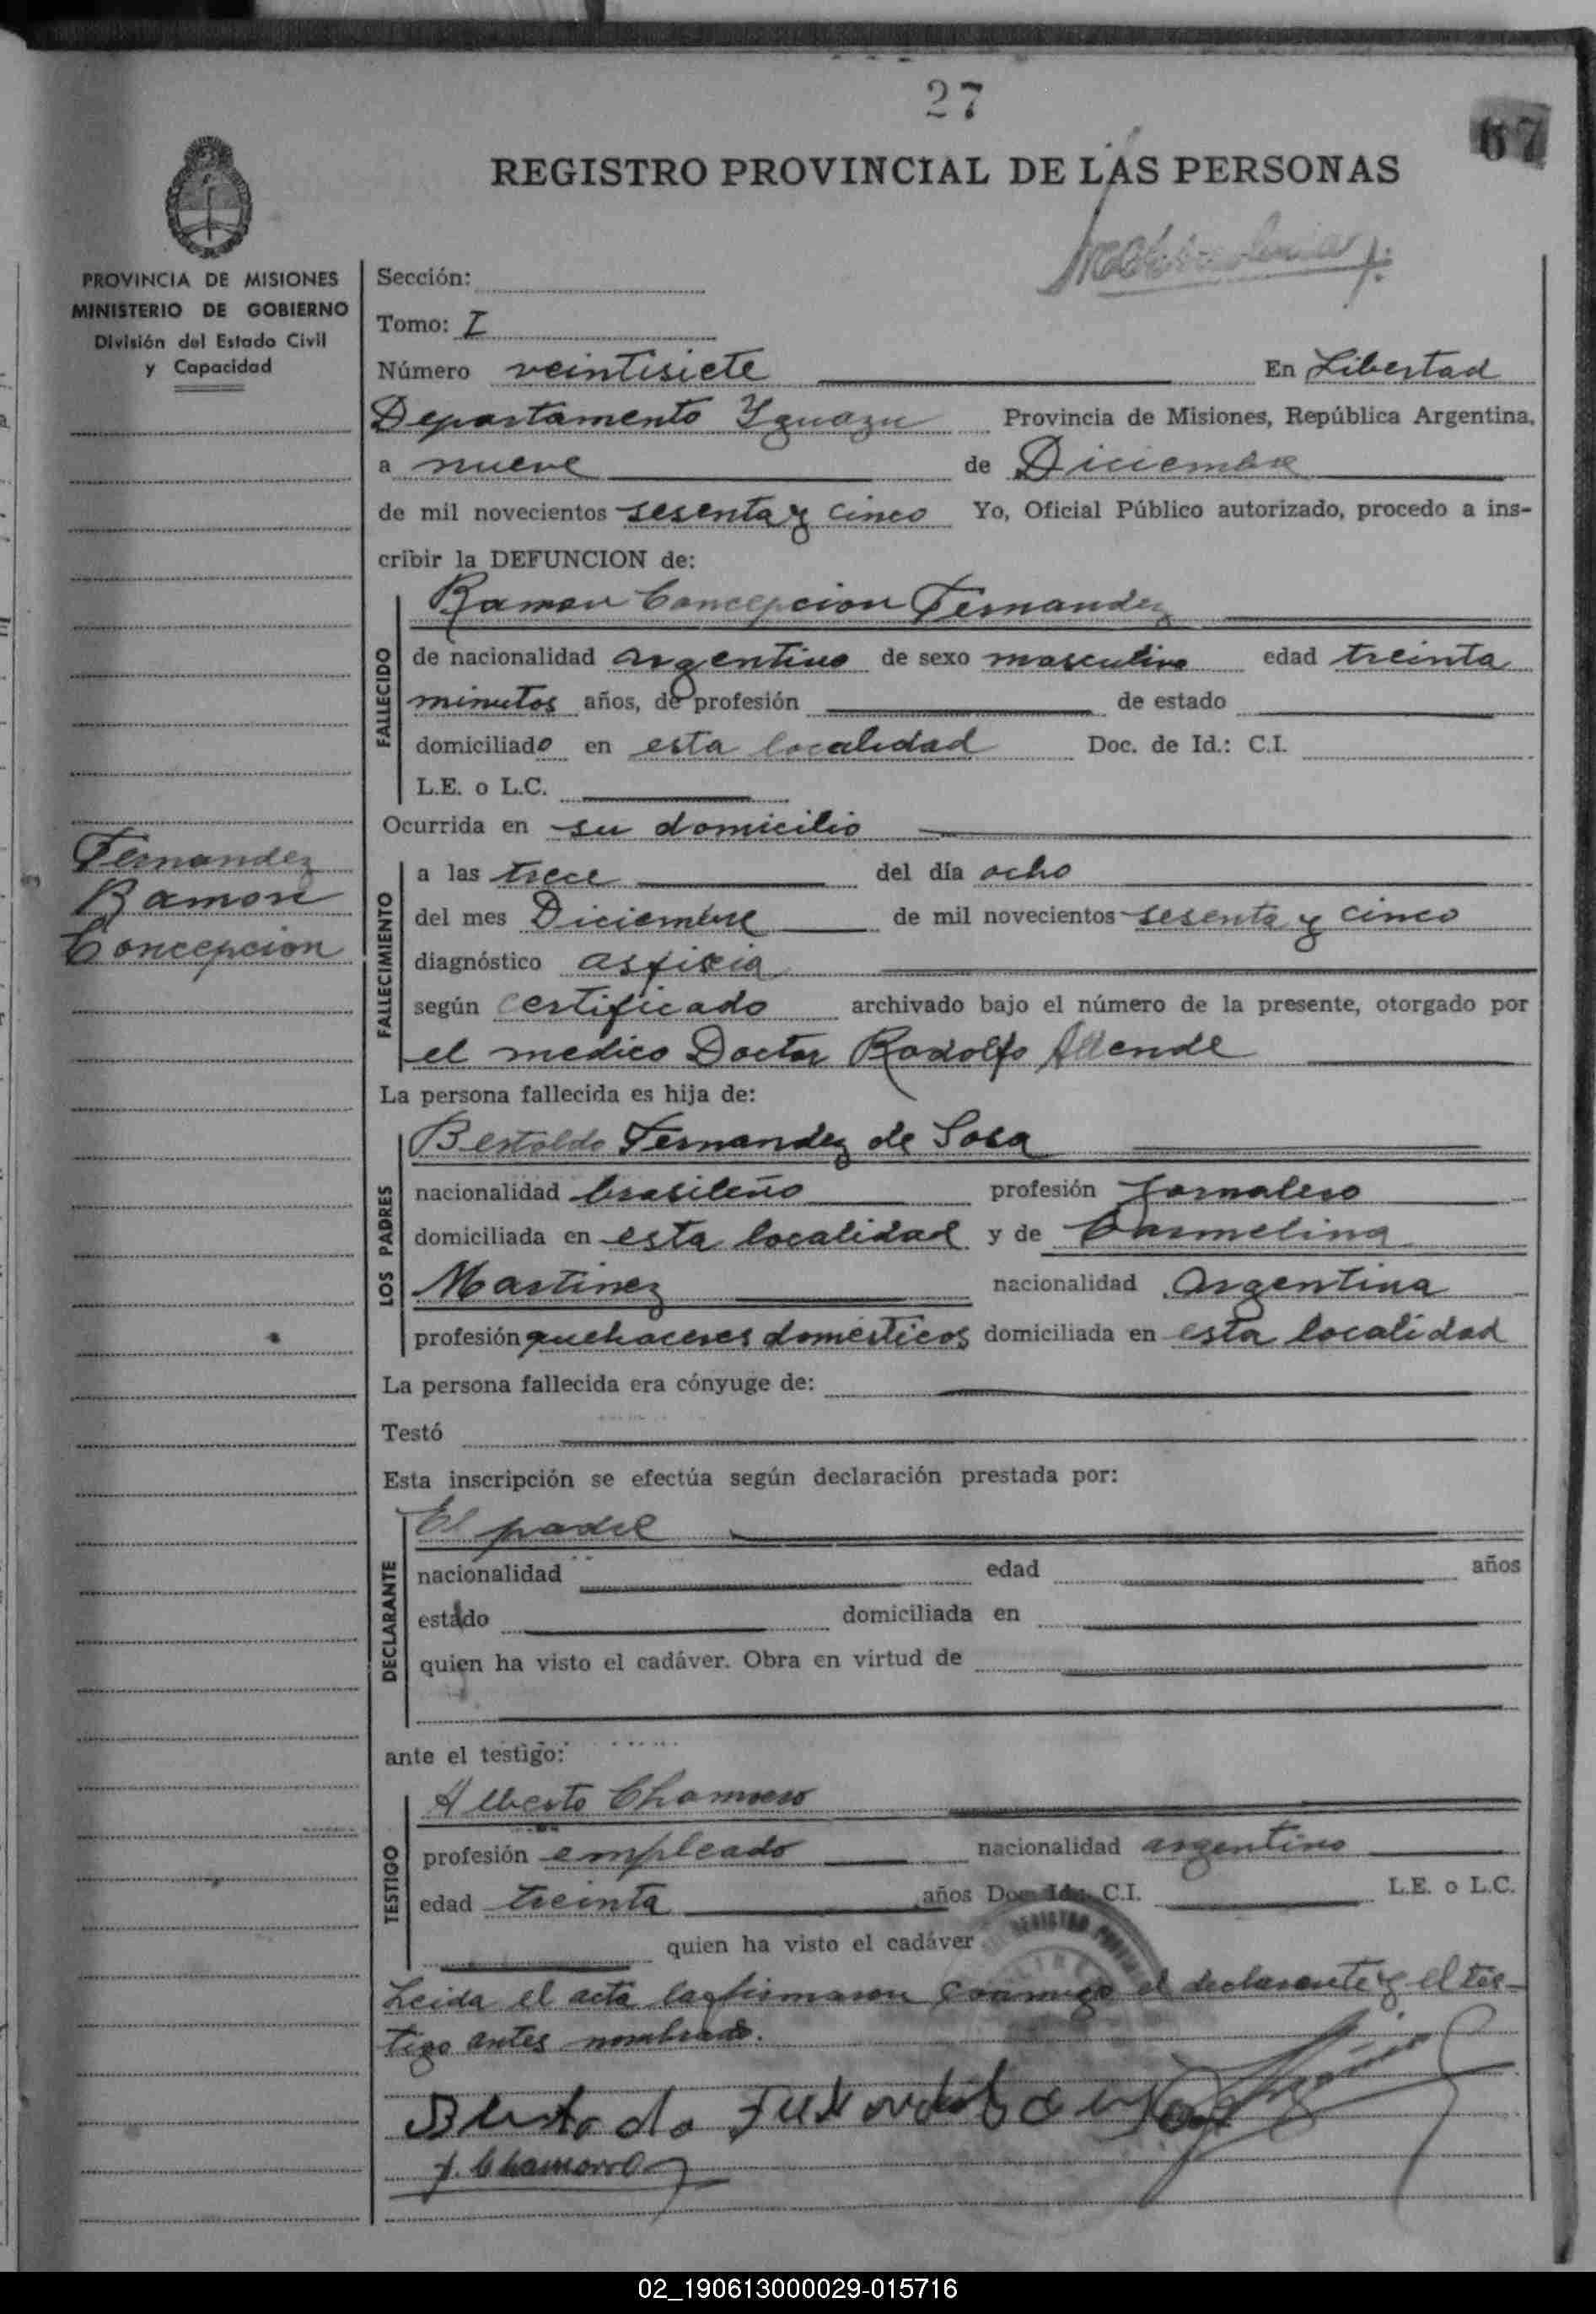 27
67
REGISTRO PROVINCIAL DE LAS PERSONAS
PROVINCIA DE MISIONES
MINISTERIO DE GOBIERNO
División del Estado Civil
y Capacidad
Fernandez
Ramon
Concepcion
Sección:
Tomo: I
Número veintisiete En Libertad
Departamento Yguazu Provincia de Misiones, República Argentina,
a nueve de Diciembre
de mil novecientos sesenta y cinco Yo, Oficial Público autorizado, procedo a ins-
cribir la DEFUNCION de:
Ramon Concepcion Fernandez
FALLECIDO
de nacionalidad argentino de sexo masculino edad treinta
minutos años, de profesión de estado
domiciliado en esta localidad Doc. de Id.: C.I.
L.E. o L.C.
Ocurrida en su domicilio
FALLECIMIENTO
a las trece del día ocho
del mes Diciembre de mil novecientos sesenta y cinco
diagnóstico asfixia
según certificado archivado bajo el número de la presente, otorgado por
el medico Doctor Rodolfo Allende
La persona fallecida es hija de:
LOS PADRES
Bertoldo Fernandez de Sosa
nacionalidad brasileño profesión Jornalero
domiciliada en esta localidad y de Carmelina
Martinez nacionalidad Argentina
profesión quehaceres domesticos domiciliada en esta localidad
La persona fallecida era cónyuge de:
Testó
Esta inscripción se efectúa según declaración prestada por:
DECLARANTE
El padre
nacionalidad edad años
estado domiciliada en
quien ha visto el cadáver. Obra en virtud de
ante el testigo:
TESTIGO
Alberto Chamorro
profesión empleado nacionalidad argentino
edad treinta años Doc. Id.: C.I. L.E. o L.C.
quien ha visto el cadáver
Leida el acta la firmaron conmigo el declarante y el tes-
tigo antes nombrado.
A. Chamorro
02_190613000029-015716